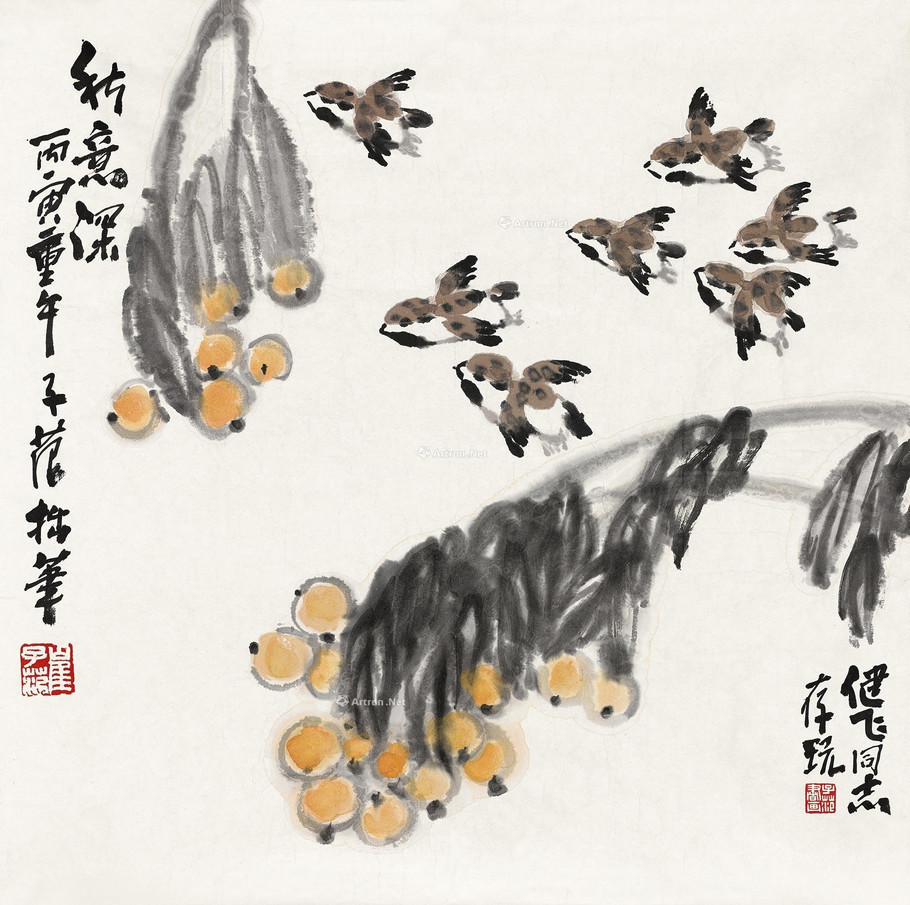 秋意深
丙寅重午 子范拙筆
崔子范
健飞同志
存玩
子范畫
Artron.Net
Artron.Net
Artron.Net